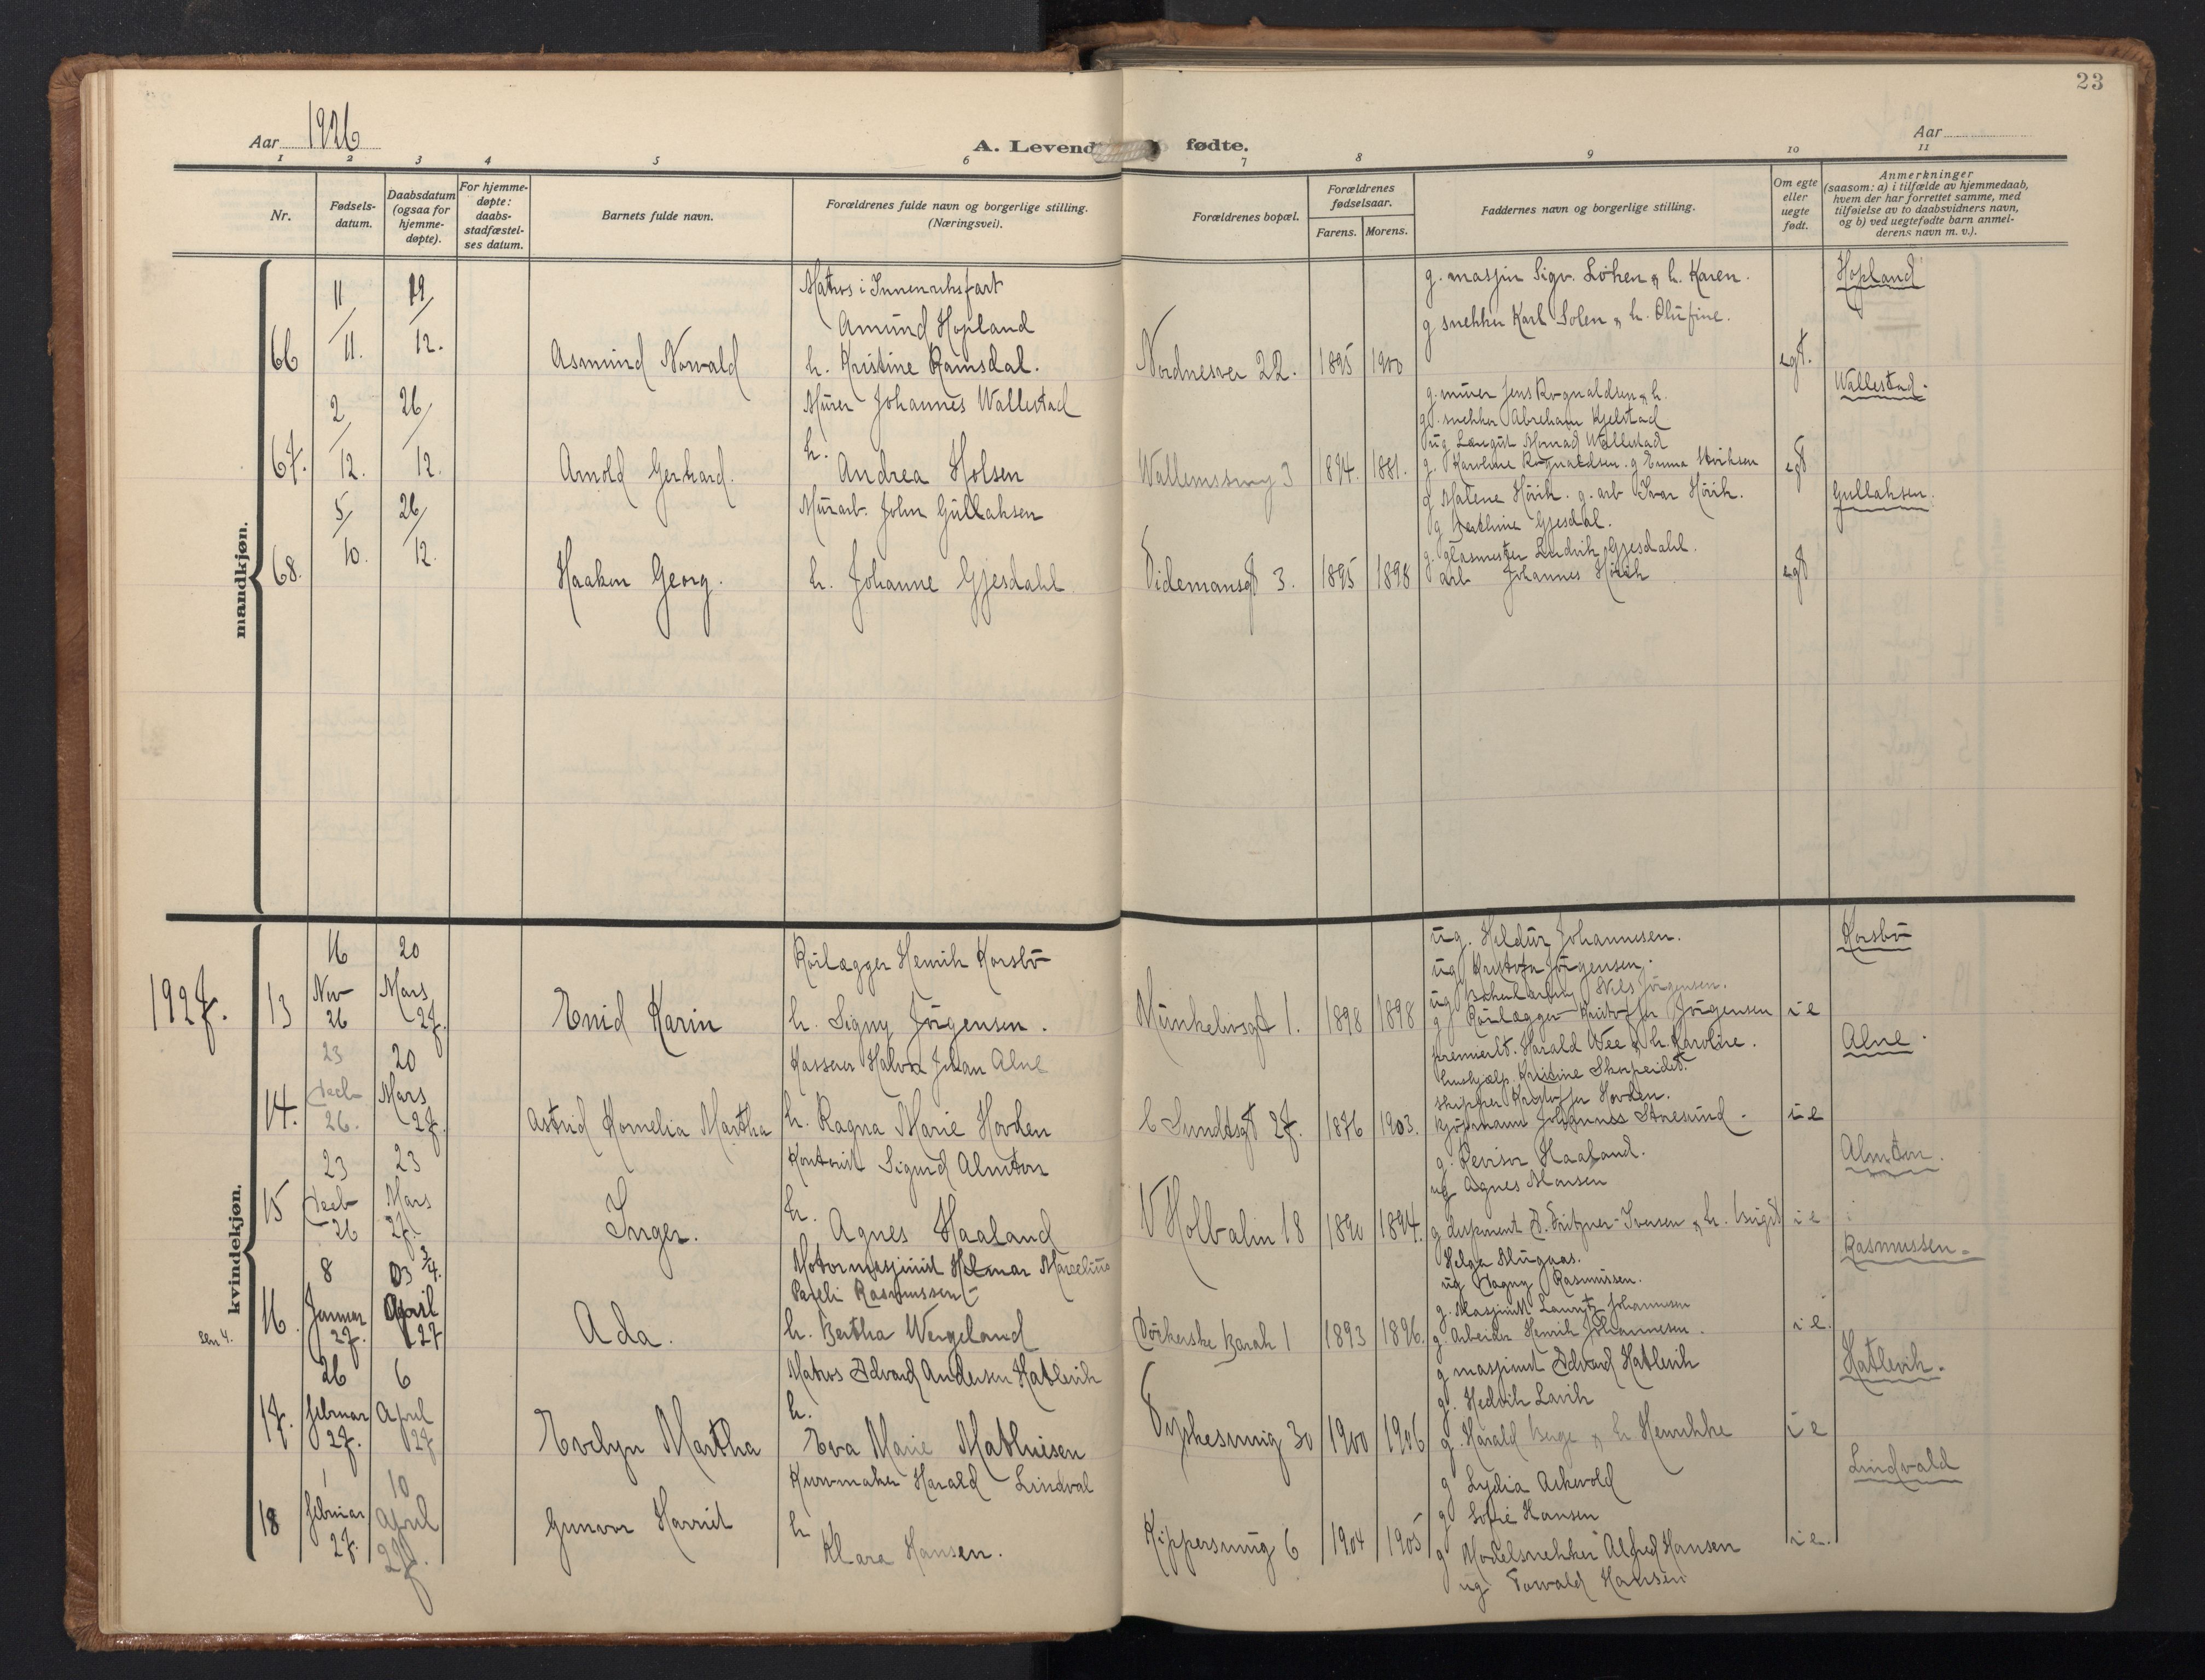 23
Aar 1926
A. Levend fødte.
Aar
1 2 3 4 5 6 7 8 9 10 11
Nr.
Fødsels-
datum.
Daabsdatum
(ogsaa for
hjemme-
døpte).
For hjemme-
døpte:
daabs-
stadfæstel-
ses datum.
Barnets fulde navn.
Forældrenes fulde navn og borgerlige stilling.
(Næringsvei).
Forældrenes bopæl.
Forældrenes
fødselsaar.
Farens. Morens.
Faddernes navn og borgerlige stilling.
Om egte
eller
uegte
født.
Anmerkninger
(saasom: a) i tilfælde av hjemmedaab,
hvem der har forrettet samme, med
tilføielse av to daabsvidners navn,
og b) ved uegtefødte barn anmel-
derens navn m. v.).
mandkjøn.
66
11/11.
19/12.
Asmund Norvald
Matros i Innenriksfart
Amund Hopland
h. Kristine Ramsdal.
Nordnesvei 22.
1895 1900
g. masjin Sigv. Löken & h. Karen.
g snekker Karl Solen & h. Olufine.
egt.
Hopland
67.
2/12.
26/12.
Arnold Gerhard.
Murer Johannes Wallestad
h.
Andrea Holsen
Wallemssmug 3
1894. 1881.
g. murer Jens Rognaldsen & h.
g. snekker Abreham Kjelstad
ug Wallestad
g. Karoline Rognaldsen. g Emma
egt
Wallestad.
68.
5/10.
26/12.
Haakon Georg.
Murarb. John Gullaksen
h. Johanne Gjesdahl
Tidemansgt 3.
1895 1898
g Malene Hövik. g. arb Ivar Hövik.
g Berthine Gjesdal.
g. glasmester Ludvik Gjesdahl.
arb Johannes Hövik
egt
Gullaksen.
kvindekjøn.
1927.
13
16
Nov
26
20
Mars
27.
Enid Karin
Rörlægger Henrik Korsbö
h. Signy Jörgensen.
Munkelivsgt 1.
1898 1898
ug. Heldur Johannesen.
ug Kristofer Jörgensen.
ug Nils Jörgensen.
g Rörlægger Kristoffer Jörgensen
i e
Korsbö
14.
23
Decb
26.
20
Mars
27.
Astrid Kornelia Martha
Kasserer Halvor Johan Alne
h. Ragna Marie Hovden
C Sundtsgt 27.
1876 1903.
premierlt. Harald Wee & h. Karoline.
hushjælp. Kristine
Skipper Kristoffer Hovden.
Kjöpmann Johannes Storesund.
i e
Alne.
15
23
Decb
26
23
Mars
27.
Inger.
Kontorist Sigurd Almton
h.
Agnes Haaland
V Holbalm 18
1890 1894.
g. Revisor Haaland.
ug Agnes Monsen
g disponent Fritzner-Iversen & h. Birgit
i e
Almton.
16.
sen 4.
8
Januar
27.
3 3/4.
April
27
Ada.
Motormasjinist Helmar Marcelius
Paseli Rasmussen
h. Bertha Wergeland
Dörkerske Barak 1
1893 1896.
Helga Mugaas.
ug Dagny Rasmussen.
g. Masjinist Lauritz Johannesen
g. Arbeider Henrik Johannesen.
i e.
Rasmussen.
17.
26
februar
27.
6
April
27
Evelyn Martha
Matros Edvard Andersen Hatlevik
h.
Eva Marie Mathiesen
Vipkesmug 30
1900 1906
g masjinist Edvard Hatlevik
g. Hedvik Lavik
g. Harald Berge & h Henrikke
i e
Hatlevik.
18
1
februar
27.
10
April
27.
Gunvor Harriet
Kurvmaker Harald Lindval
h
Klara Hansen.
Kippersmug 6
1904 1905
g Lydia Askevold
g Sofie Hansen
g Modelsnekker Alfred Hansen
ug Torvald Hansen
i e.
Lindvald